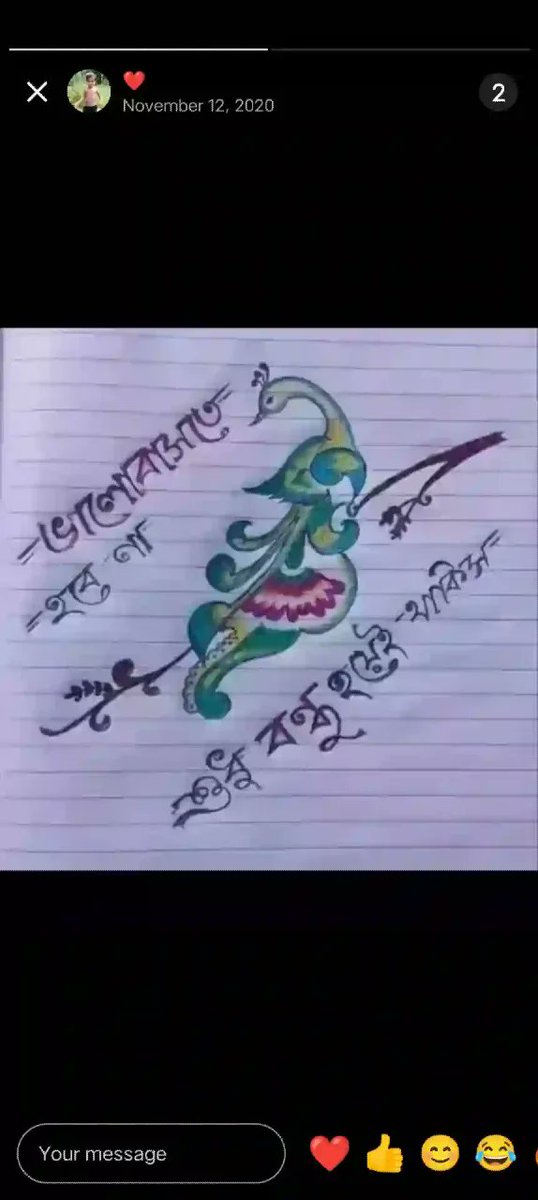 ❤️
November 12, 2020
2
ভালোবাসতে
হবে না
শুধু বন্ধু হয়েই থাকিস
Your message
❤️👍😊😂